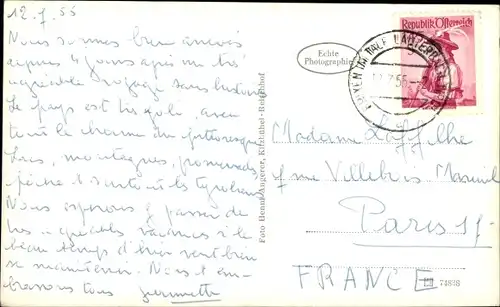 12.7.55
Nous sommes bien arrivés
depuis 4 jours après un très
agréable voyage sans histoires.
Le pays est très joli, avec
tout le charme du pittoresque
Lacs, montagnes, promenades
pêche et surtout les tyroliens
Nous espérons y passer de
très agréables vacances si le
beau temps d'hier veut bien
se maintenir. Nous t'em-
brassons tous Jeannette
Echte
Photographie
Republik Österreich
Foto Henny Angerer, Kitzbühel-Reitherhof
Madame Laffilhe
rue Villebois Mareuil
Paris 17
FRANCE